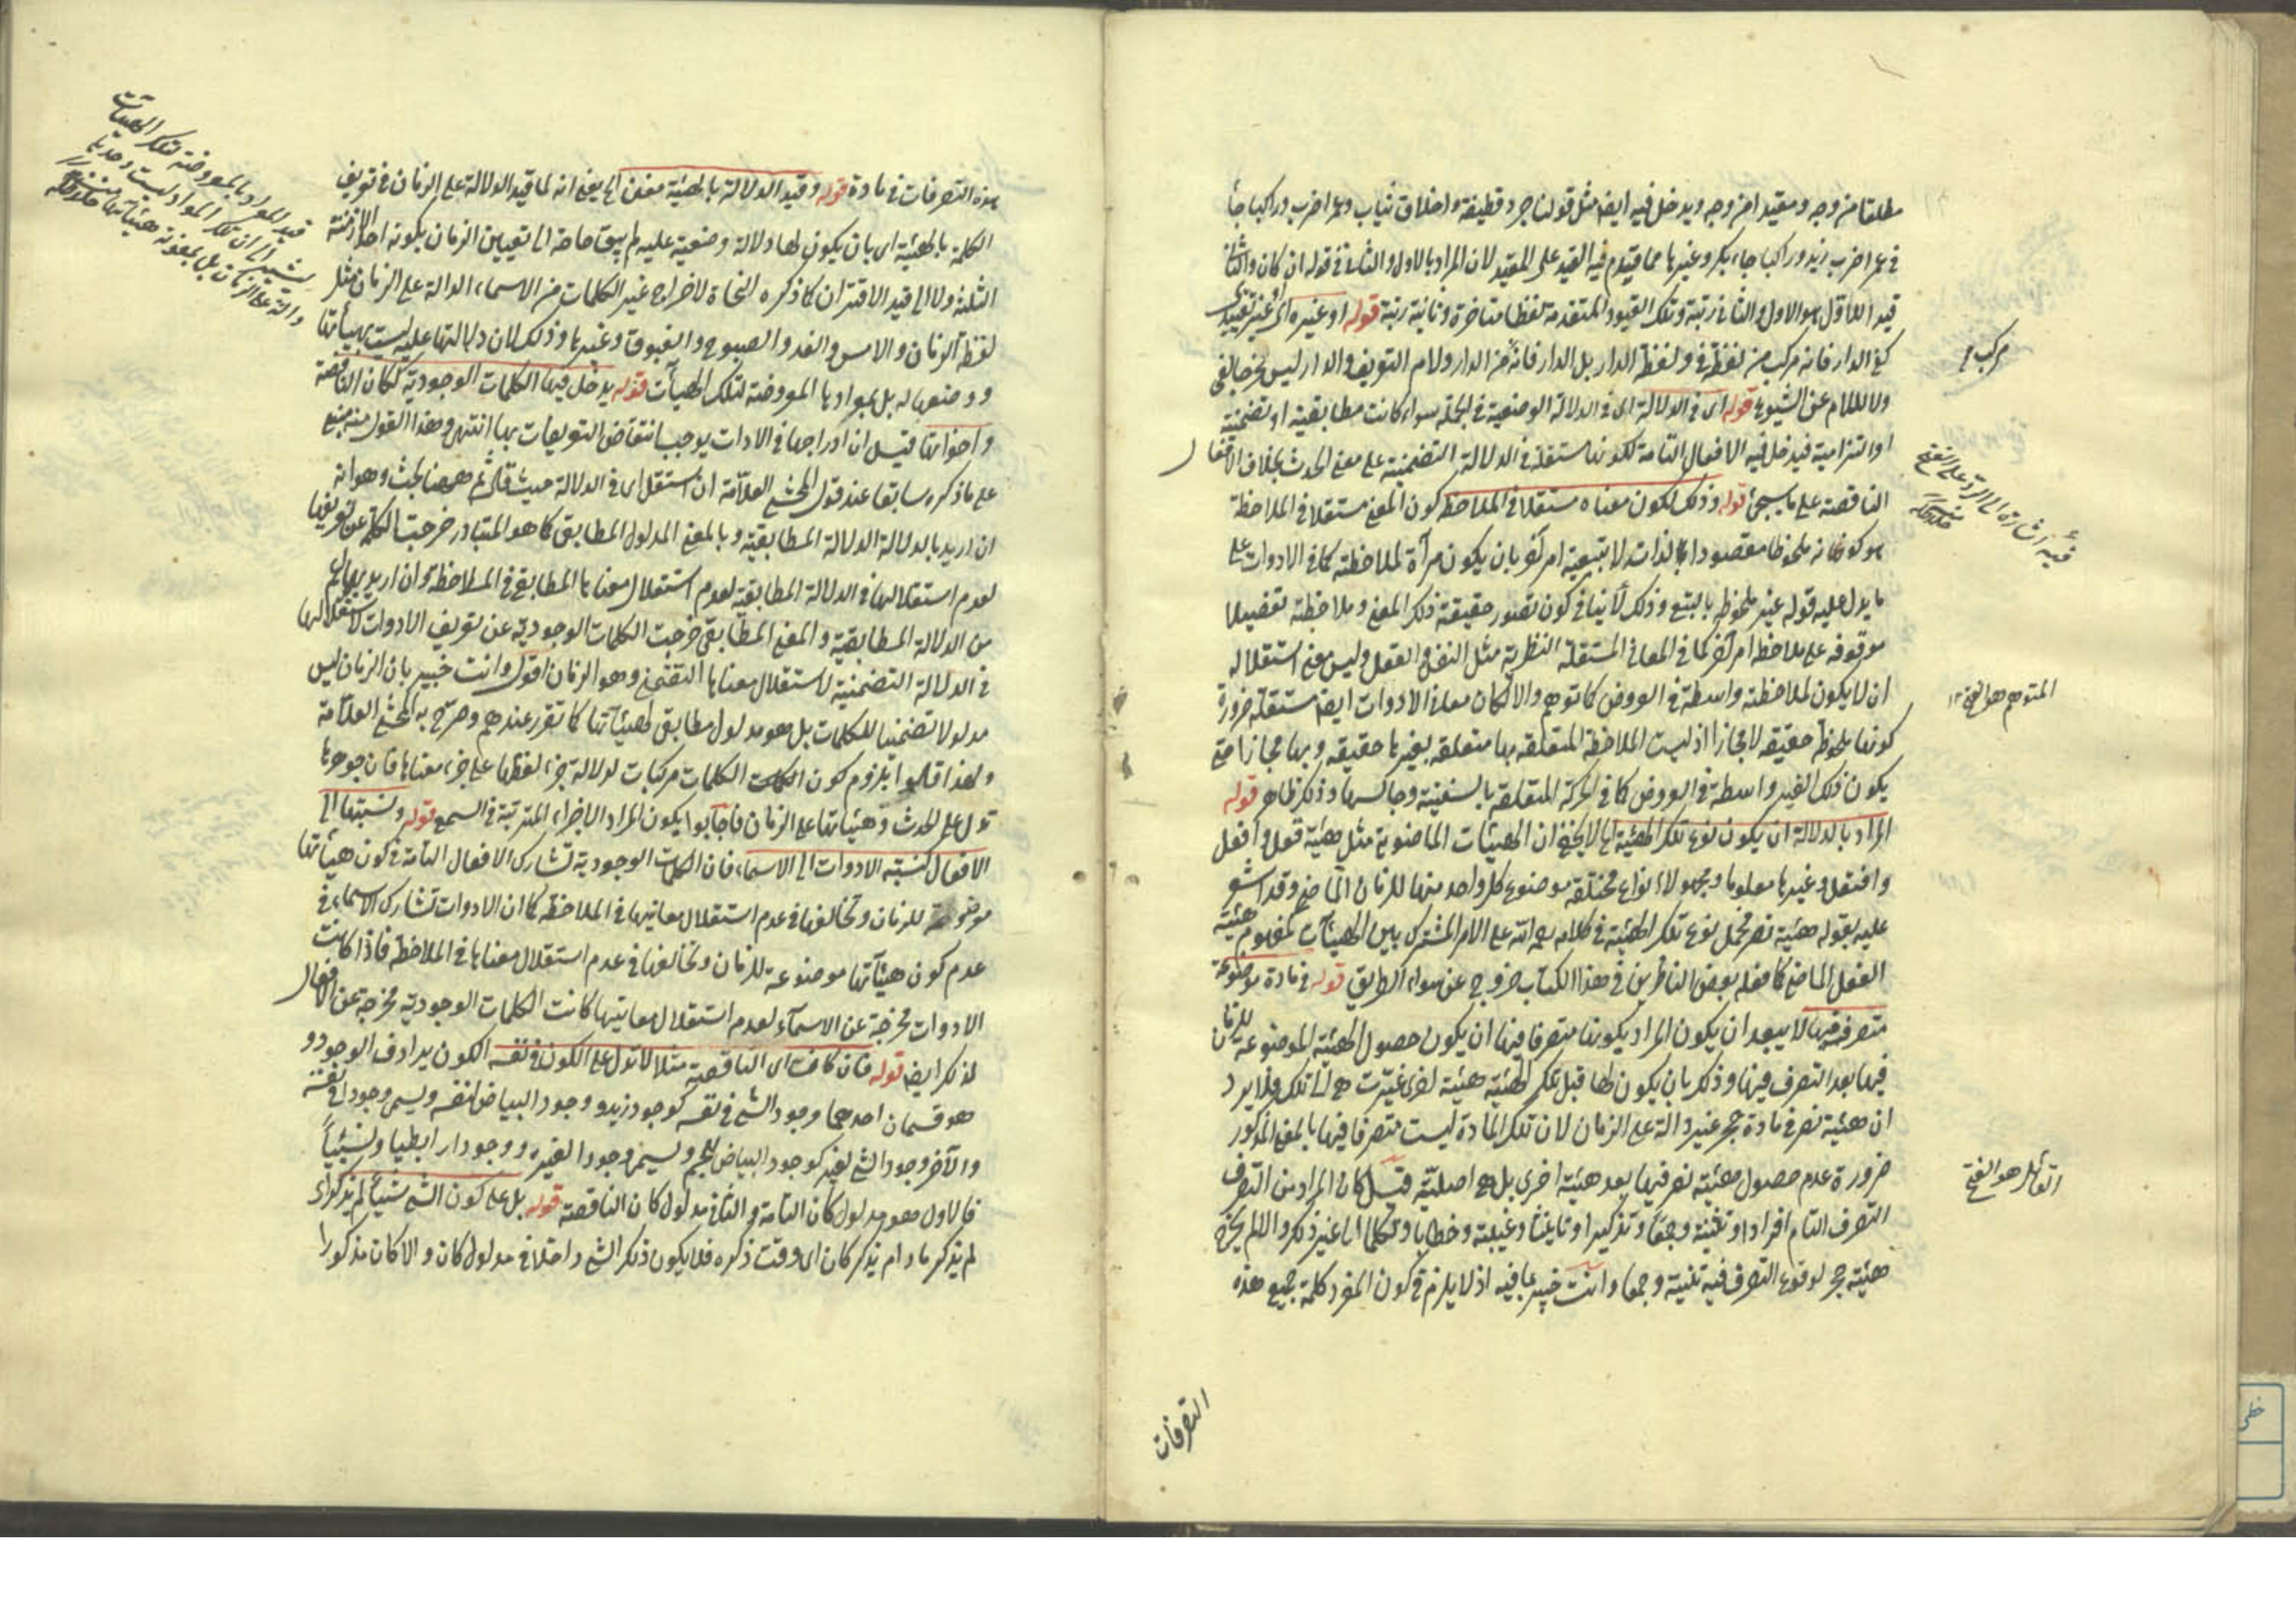 مطلقا من وجه ومقيدا من وجه ويدخل فيه ايضا مثل قولنا جرد قطيفة واخلاق ثياب وعمرا ضرب وراكبا جاء
في عمرا ضرب زيد وراكبا جاء بكر وغيرها مما قدم فيه القيد على المقيد لان المراد بالاول والثاني في قوله ان كان والثاني
قيدا للاول هو الاول والثاني رتبة وتلك القيود المتقدمة لفظا متاخرة وثانية رتبة قوله او غيره اى غير تقييدى
كفى الدار فانه مركب من لفظة في ولفظة الدار بل الدار فانه من الدار ولام التعريف والدار ليس مخرجا لفى
ولا للام عن الشيوع قوله اى في الدلالة اى في الدلالة الوضعية في الجملة سواء كانت مطابقية او تضمنية
او التزامية فيدخل فيه الافعال التامة لكونها مستقلة في الدلالة التضمنية على معنى الحدث بخلاف الافعال
الناقصة على ما سيجئ قوله وذلك لكون معناه مستقلا في الملاحظة كون المعنى مستقلا في الملاحظة
هو كونه ملحوظا مقصودا بالذات لا بتبعية امر آخر بان يكون مرآة لملاحظته كما في الادوات على
ما يدل عليه قوله غير ملحوظ بالتبع وذلك لا ينافي كون تصور حقيقة ذلك المعنى وملاحظته تفصيلا
موقوفة على ملاحظة امر آخر كما في المعاني المستقلة النظرية مثل النفس والعقل وليس معنى استقلاله
ان لا يكون لملاحظته واسطة في العروض كما توهم والا لكان معاني الادوات ايضا مستقلة ضرورة
كونها ملحوظة حقيقة لا مجازا اذ ليست الملاحظة المتعلقة بها متعلقة بغيرها حقيقة وبها مجازا حتى
يكون ذلك الغير واسطة في العروض كما في الحركة المتعلقة بالسفينة وجالسها وذلك ظاهر قوله
المراد بالدلالة ان يكون نوع تلك الهيئة الخ لا يخفى ان الهيئات الماضوية مثل هيئة فعل وافعل
وافتعل وغيرها معلوما ومجهولا انواع مختلفة موضوع كل واحد منها للزمان الماضي وقد اشعر
عليه بقوله هيئة نصر فحمل نوع تلك الهيئة في كلامه رحمه الله على الامر المشترك بين الهيئات كمفهوم هيئة
الفعل الماضي كما فعله بعض الناظرين في هذا الكتاب خروج عن سواء الطريق قوله في مادة موضوعة
متصرفة فيها لا يبعد ان يكون المراد بكونها متصرفا فيها ان يكون حصول الهيئة الموضوعة للزمان
فيها بعد التصرف فيها وذلك بان يكون لها قبل تلك الهيئة هيئة اخرى غيرت هى الى تلك فلا يرد
ان هيئة نصر في مادة حجر غير دالة على الزمان لان تلك المادة ليست متصرفا فيها بالمعنى المذكور
ضرورة عدم حصول هيئة نصر فيها بعد هيئة اخرى بل هى اصلية قيل كان المراد من التصرف
التصرف التام افرادا وتثنية وجمعا وتذكيرا وتأنيثا وغيبة وخطابا وتكلما الى غير ذلك والا لم يخرج
هيئة حجر لوقوع التصرف فيه تثنية وجمعا وانت خبير بما فيه اذ لا يلزم في كون المفرد كلمة جميع هذه
مركب
فيه اشارة الى الرد على الفتح
المتوهم هو الفتح
القائل هو الفتح
التصرفات
هذه التصرفات في مادة قوله وقيد الدلالة بالهيئة مغن الخ يعنى انه لما قيد الدلالة على الزمان في تعريف
الكلمة بالهيئة اى بان يكون لها دلالة وضعية عليه لم يبق حاجة الى تعيين الزمان بكونه احد الازمنة
الثلثة ولا الى قيد الاقتران كما ذكره النحاة لاخراج غير الكلمات من الاسماء الدالة على الزمان مثل
لفظ الزمان والامس والغد والصبوح والغبوق وغيرها وذلك لان دلالتها عليه ليست بهيأتها
ووضعها له بل بموادها المعروضة لتلك الهيآت قوله يدخل فيها الكلمات الوجودية ككان الناقصة
واخواتها قيل ان ادراجها في الادات يوجب انتقاض التعريفات بها انتهى وهذا القول منه مبنى
على ما ذكره سابقا عند قول المحشى العلامة ان استقل اى في الدلالة حيث قال ثم ههنا بحث وهو انه
ان اريد بالدلالة الدلالة المطابقية وبالمعنى المدلول المطابقى كما هو المتبادر خرجت الكلمة عن تعريفها
لعدم استقلالها في الدلالة المطابقية لعدم استقلال معناها المطابقى في الملاحظة وان اريد بهما اعم
من الدلالة المطابقية والمعنى المطابقى خرجت الكلمات الوجودية عن تعريف الادوات لاستقلالها
في الدلالة التضمنية لاستقلال معناها التضمنى وهو الزمان اقول وانت خبير بان الزمان ليس
مدلولا تضمنيا للكلمات بل هو مدلول مطابقى لهيئآتها كما تقرر عندهم وصرح به المحشى العلامة
ولهذا قالوا يلزم كون الكلمات مركبات لدلالة جزء لفظها على جزء معناها فان جوهرها
تدل على الحدث وهيئاتها على الزمان فاجابوا بكون المراد الاجزاء المترتبة في السمع قوله ونسبتها الى
الافعال كنسبة الادوات الى الاسماء فان الكلمات الوجودية تشارك الافعال التامة في كون هيأتها
موضوعة للزمان وتخالفها في عدم استقلال معانيها في الملاحظة كما ان الادوات تشارك الاسماء في
عدم كون هيئآتها موضوعة للزمان وتخالفها في عدم استقلال معناها في الملاحظة فاذا كانت
الادوات مخرجة عن الاسمآء لعدم استقلال معانيها كانت الكلمات الوجودية مخرجة عن الافعال
لذلك ايضا قوله فان كان اى الناقصة مثلا لا تدل على الكون في نفسه الكون يرادف الوجود و
هو قسمان احدهما وجود الشئ في نفسه كوجود زيد ووجود البياض لنفسه ويسمى وجودا في نفسه
والآخر وجود الشئ لغيره كوجود البياض للجسم ويسمى وجودا لغيره ووجودا رابطيا ونسبيا
فالاول هو مدلول كان التامة والثاني مدلول كان الناقصة قوله بل على كون الشئ شيئا لم يذكر اى
لم يذكر مادام يذكر كان اى وقت ذكره فلا يكون ذلك الشئ داخلا في مدلول كان والا كان مذكورا
قيد المواد بالمعروضة لتلك الهيئات
يشير الى ان تلك المواد ليست وحدها
دالة على الزمان بل بمعونة هيئآتها